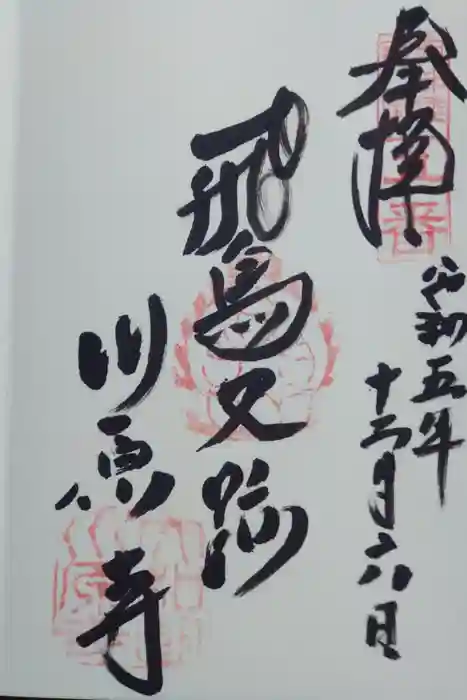 奉拝
令和五年
十二月六日
飛鳥又跡
川原寺